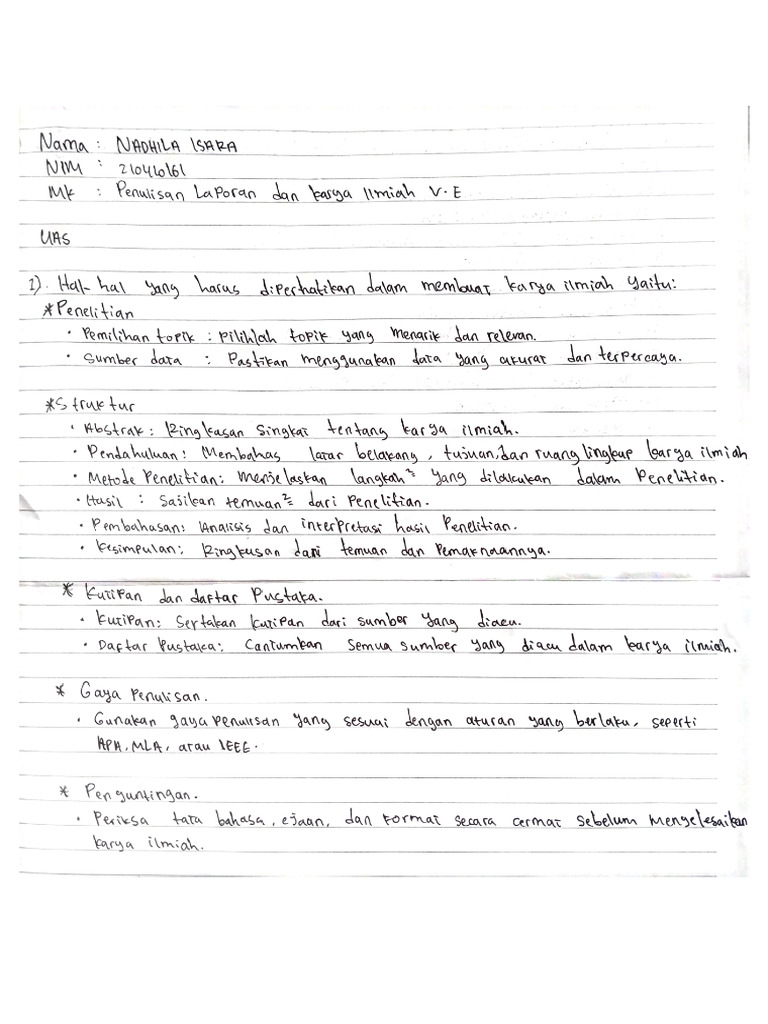 Nama : NADHILA ISARA
NIM : 21046161
Mk : Penulisan Laporan dan karya Ilmiah V.E
UAS
1). Hal-hal yang harus diperhatikan dalam membuat karya ilmiah yaitu:
*Penelitian
• Pemilihan topik : pilihlah topik yang menarik dan relevan.
• Sumber data : Pastikan menggunakan data yang akurat dan terpercaya.
*Struktur
• Abstrak : Ringkasan Singkat tentang karya ilmiah.
• Pendahuluan: Membahas latar belakang, tujuan, dan ruang lingkup karya ilmiah
• Metode Penelitian: menjelaskan langkah² yang dilakukan dalam Penelitian.
• Hasil : Sajikan temuan² dari Penelitian.
• Pembahasan: Analisis dan interpretasi hasil Penelitian.
• Kesimpulan: Ringkasan dari temuan dan Pemaknaannya.
* Kutipan dan daftar Pustaka.
• Kutipan: Sertakan kutipan dari sumber yang diacu.
• Daftar Pustaka: Cantumkan Semua sumber yang diacu dalam karya ilmiah.
* Gaya Penulisan.
• Gunakan gaya penulisan yang sesuai dengan aturan yang berlaku, seperti
APA, MLA, atau IEEE.
* Penguntingan.
• Periksa tata bahasa, ejaan, dan format secara cermat sebelum mengelesaikan
karya ilmiah.